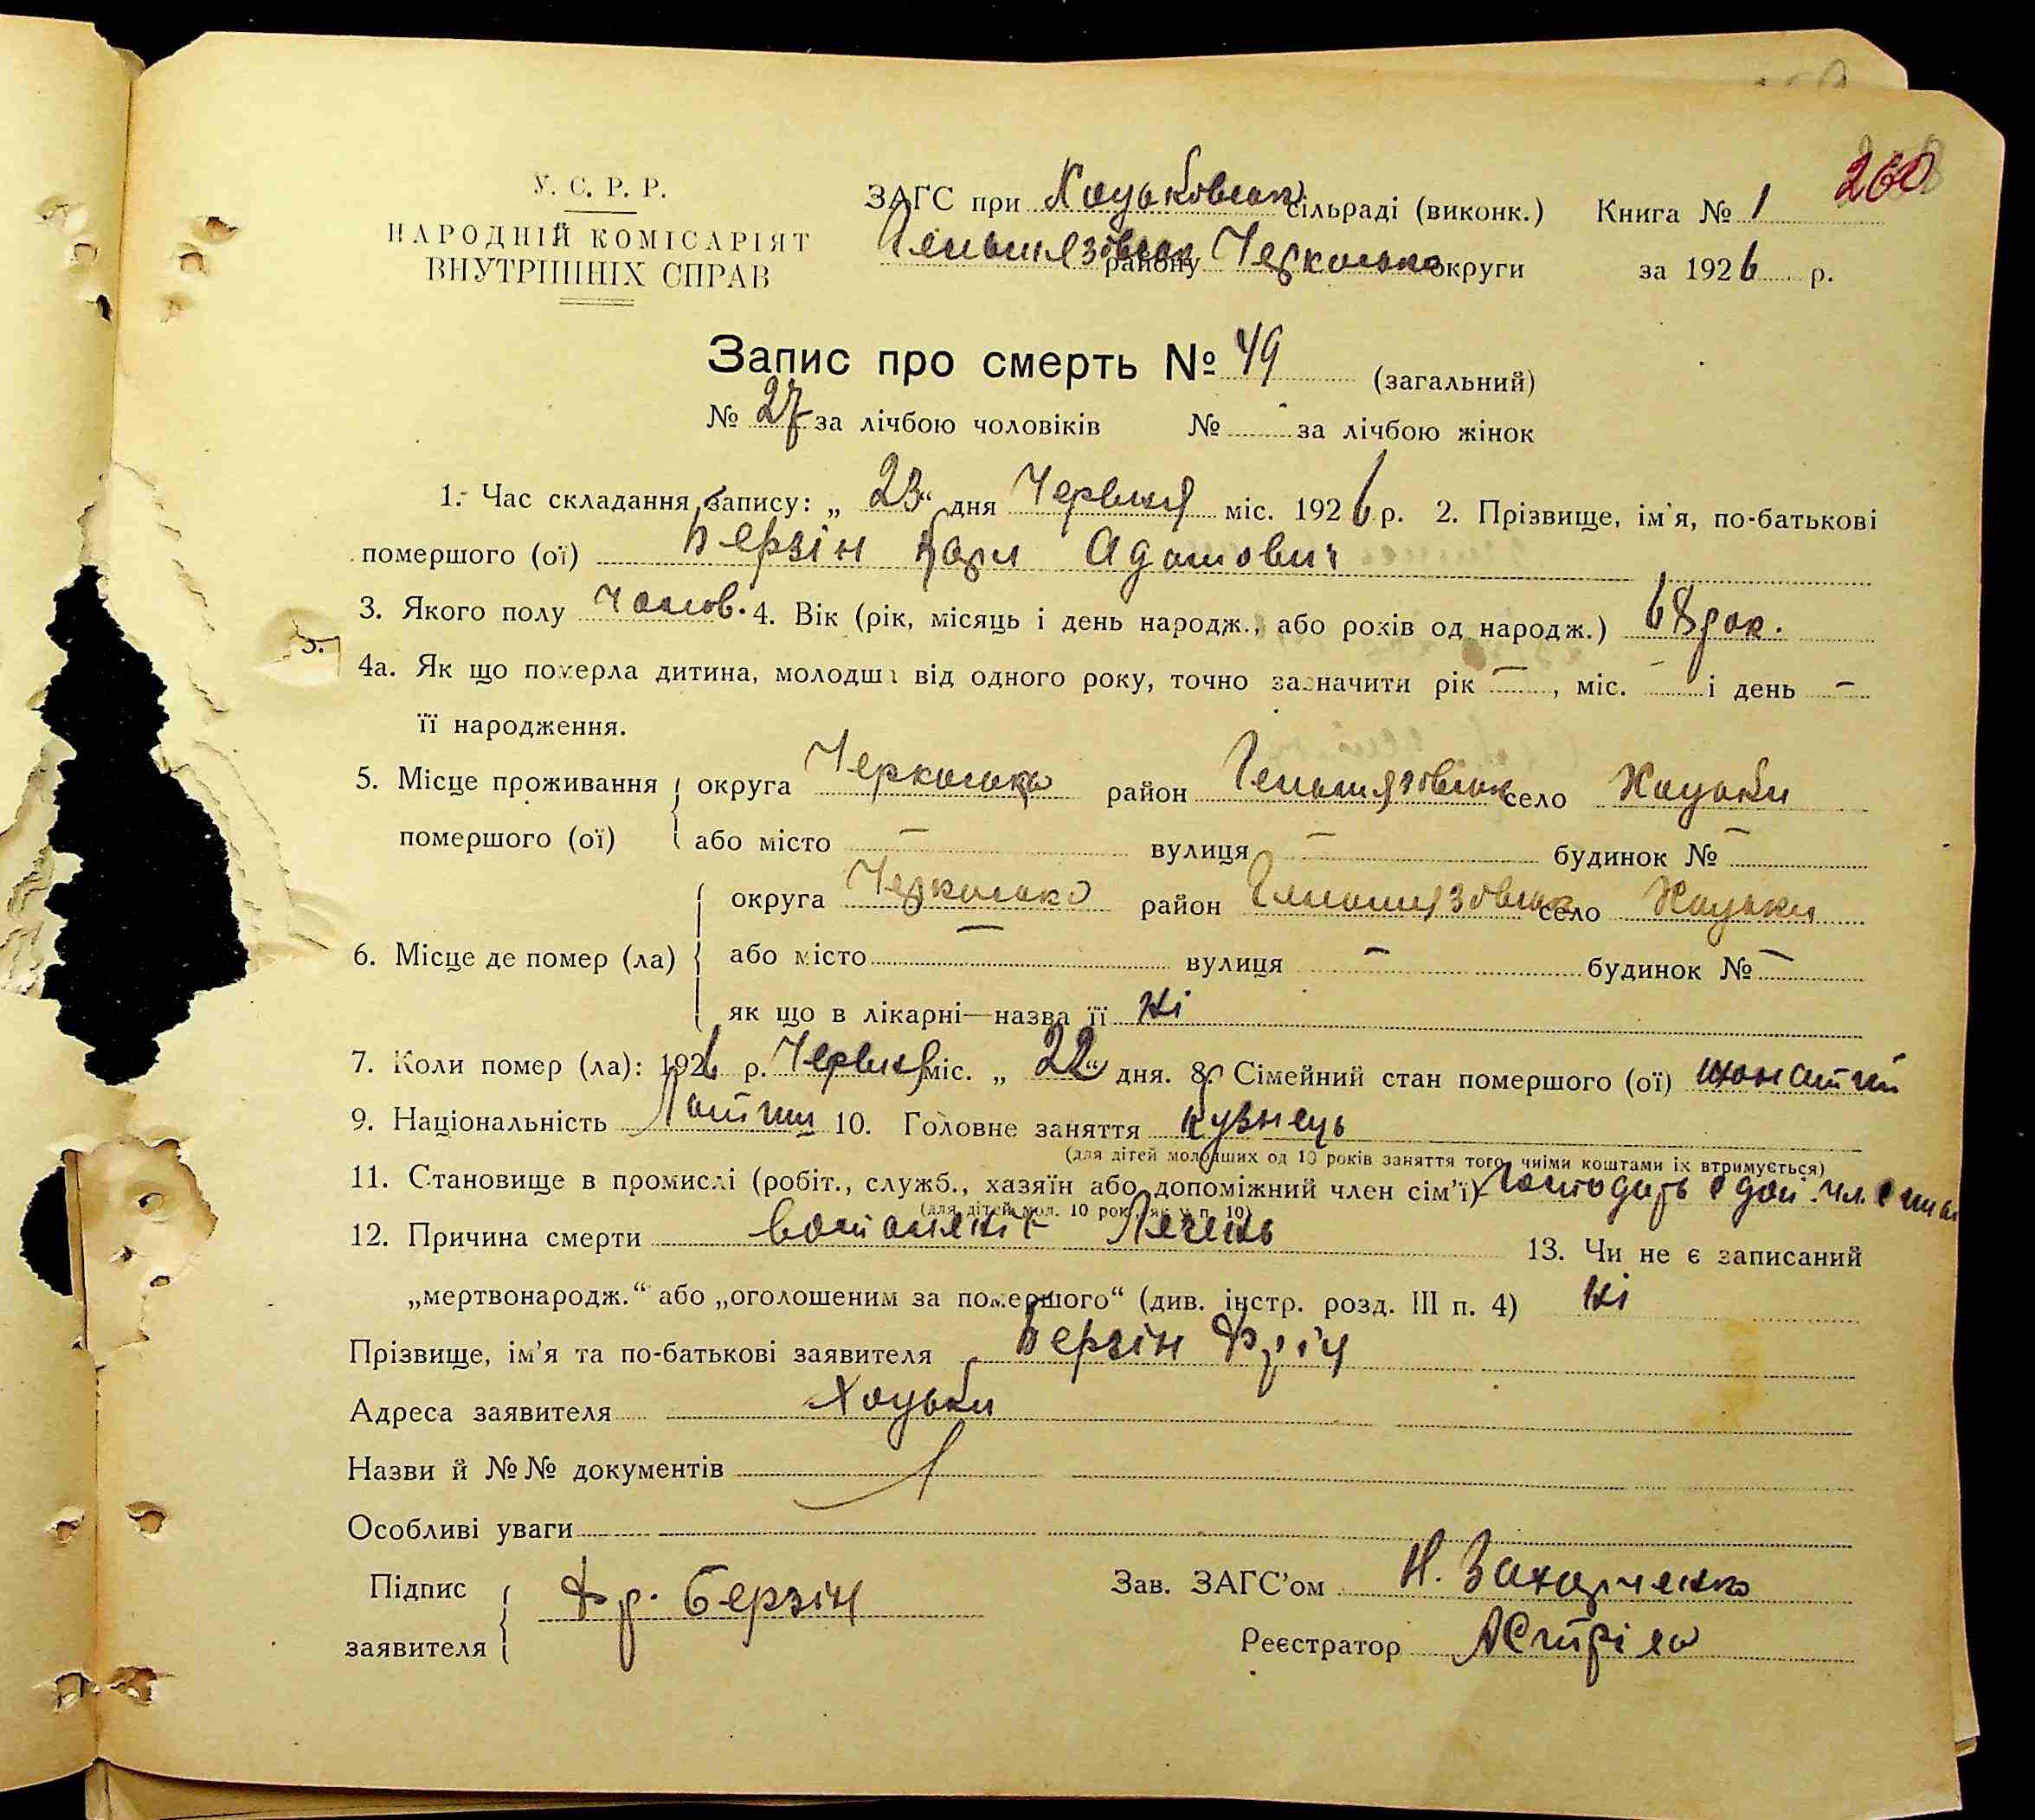 260
У. С. Р. Р.
НАРОДНІЙ КОМІСАРІЯТ
ВНУТРІШНІХ СПРАВ
ЗАГС при Хоцьківськ. сільраді (виконк.) Книга № 1
Гельмязівськ району Черкаської округи за 1926 р.
Запис про смерть № 49 (загальний)
№ 27 за лічбою чоловіків № - за лічбою жінок
1. Час складання запису: „ 23 “ дня Червня міс. 1926 р. 2. Прізвище, ім'я, по-батькові
помершого (ої) Берзін Карл Адамович
3. Якого полу Чолов. 4. Вік (рік, місяць і день народж., або років од народж.) 68 рок.
4а. Як що померла дитина, молодша від одного року, точно зазначити рік —, міс. — і день —
її народження.
5. Місце проживання округа Черкаська район Гельмязівськ село Хоцьки
помершого (ої) або місто — вулиця — будинок № —
округа Черкаська район Гельмязівськ село Хоцьки
6. Місце де помер (ла) або місто — вулиця — будинок № —
як що в лікарні—назва її Ні
7. Коли помер (ла): 1926 р. Червня міс. „ 22 “ дня. 8. Сімейний стан помершого (ої) жонатий
9. Національність Латиш 10. Головне заняття Кузнець
(для дітей молодших од 10 років заняття того, чиїми коштами їх втримується)
11. Становище в промислі (робіт., служб., хазяїн або допоміжний член сім'ї)
(для дітей мол. 10 рок., як у п. 10)
12. Причина смерти Печень 13. Чи не є записаний
„мертвонародж.“ або „оголошеним за помершого“ (див. інстр. розд. III п. 4) Ні
Прізвище, ім'я та по-батькові заявителя Берзін Фріц
Адреса заявителя Хоцьки
Назви й №№ документів
Особливі уваги
Підпис
заявителя Фр. Берзін
Зав. ЗАГС'ом Н. Захарченко
Реєстратор АСтріла